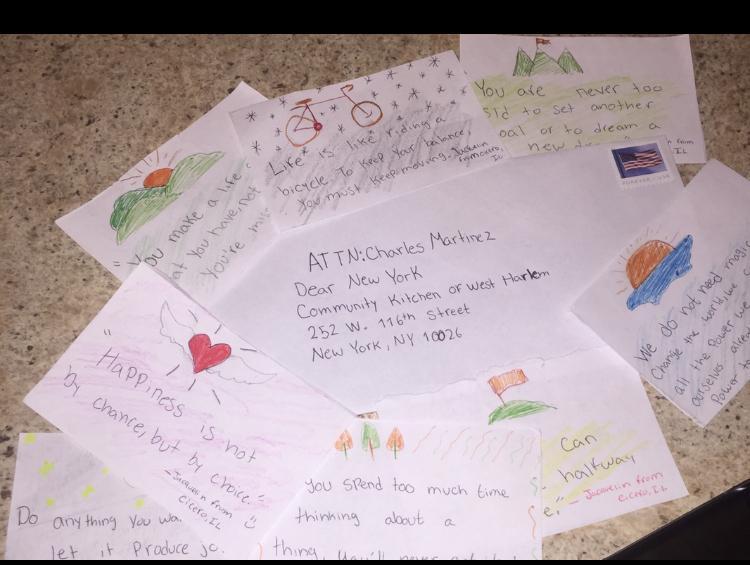 You are never too
old to set another
goal or to dream a
new
from
IL
Life is like riding a
bicycle. To keep your balance,
You must keep moving.
Jacquelin
from cicero,
IL
"You make a life
at You have, not
You're
FOREVER USA
ATTN: Charles Martinez
Dear New York
Community Kitchen or West Harlem
252 W. 116th Street
New York, NY 10026
We do not need magic
Change the world, we
all the Power we
ourselves alrea
Power to
"Happiness is not
by chance, but by choice."
- Jacquelin from
cicero, IL
Can
halfway
e,"
- Jacquelin from
cicero, IL
Do anything You wa
let it Produce jo
You spend too much time
thinking about a
thing, You'll never